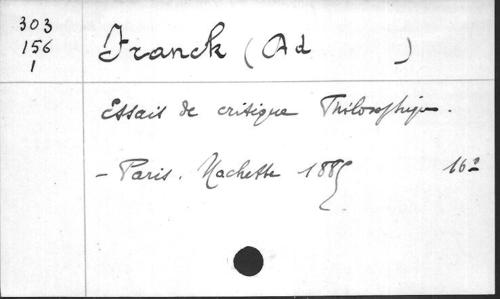 303
156
1
Franck (Ad )
Essais de critique Philosophique.
- Paris. Hachette 1885
16º